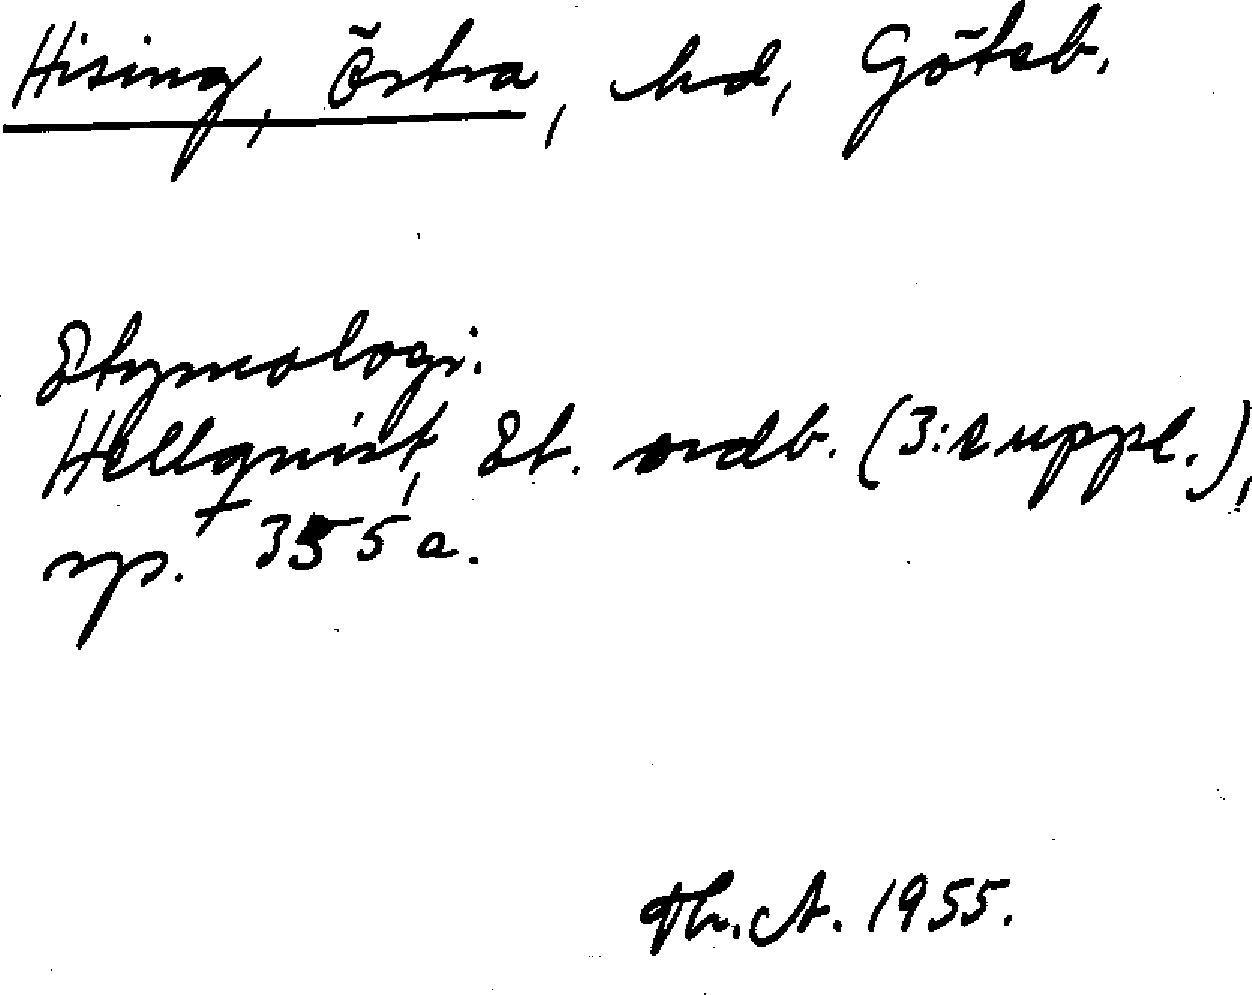 Hising, Östra, hd, Göteb.
Etymologi.
Hellquist, Et. ordb. (3:e uppl.),
sp. 355 a.
Th. A. 1955.